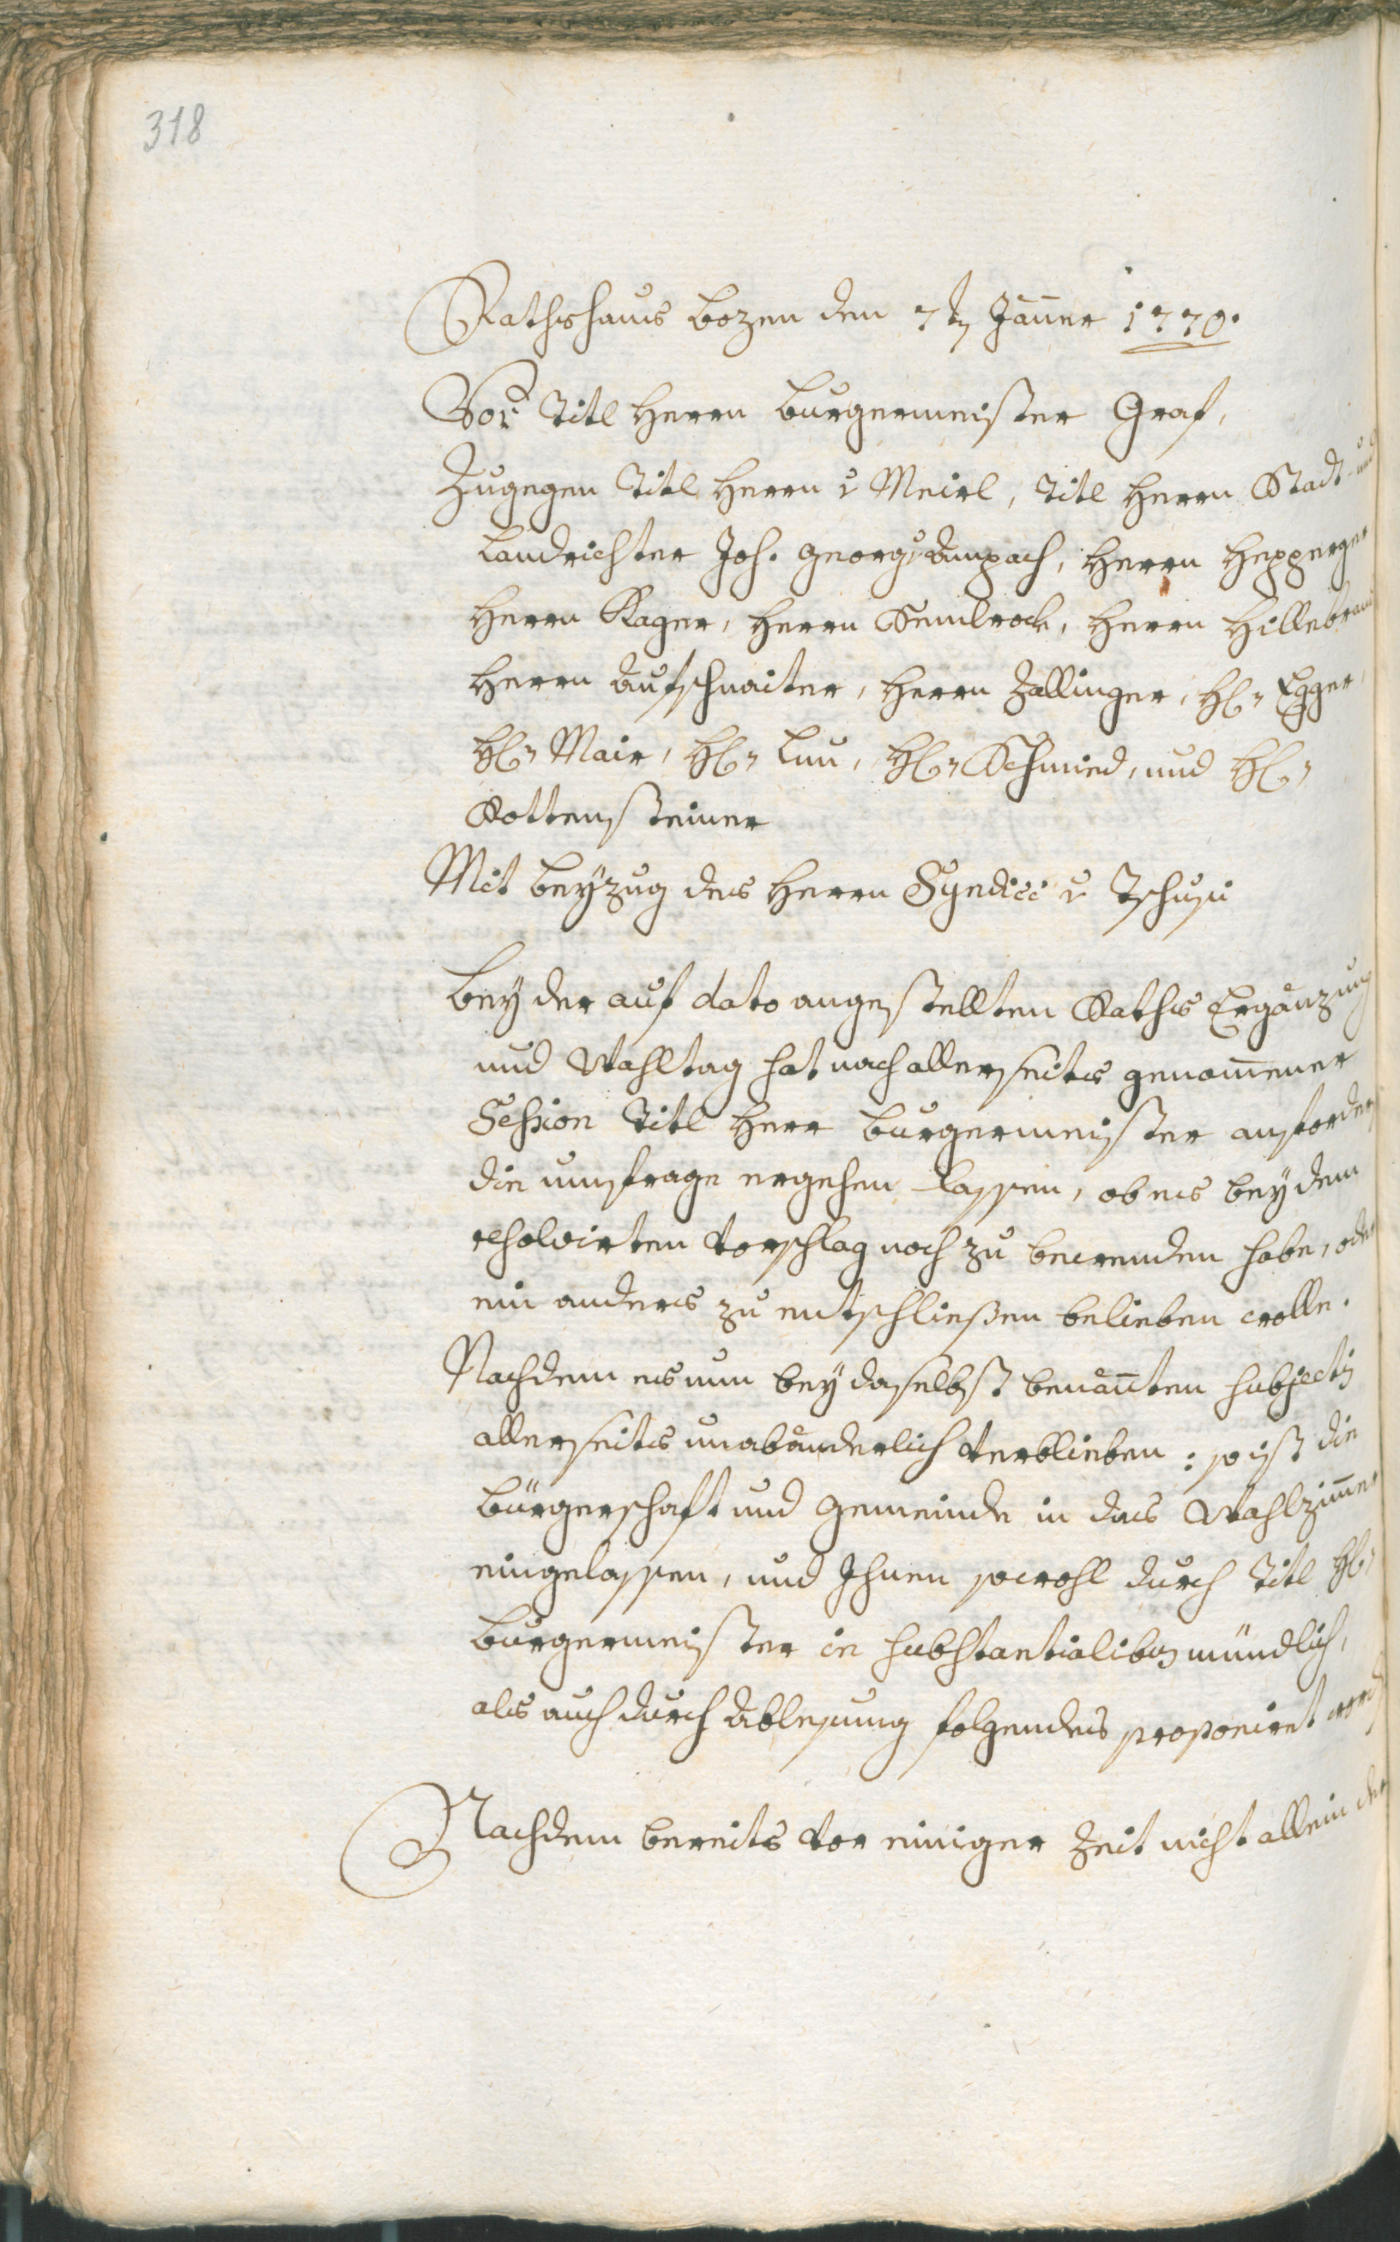 318
Rathshaus Bozen den 7t Jäner 1770.
Vor Titl Herrn Burgermeister Graf,
Zugegen Titl Herrn v Meirl, Titl Herrn Stadt- und
Landrichter Joh. Georg v Anpach, Herrn Hepperger
Herrn Kager, Herrn Semlrock, Herrn Hillebrand
Herrn Aufschnaiter, Herrn Zallinger, H: Egger,
H: Mair, H: Luu, H: Schmied, und H:
Rottensteiner
Mit beÿzug des Herrn Syndici v Tschusi
Beÿ der auf dato angestellten Raths Ergänzung
und Wahltag hat nach allerseits genomener
Session Titl Herr Burgermeister anforders
die umfrage ergehen lassen, ob es beÿ dem
resolvirten Vorschlag noch zu bewenden habe, oder
ein anders zu entschließen belieben wolle.
Nachdem es nun beÿ daselbst benanten subjectis
allerseits unabänderlich verblieben: so ist die
Bürgerschaft und Gemeinde in das Wahlzimer
eingelassen, und Ihnen sowohl durch Titl H:
Burgermeister in substantialibus mündlich,
als auch durch Ablesung folgendes proponiret word
Nachdem bereits vor einiger Zeit nicht allein der